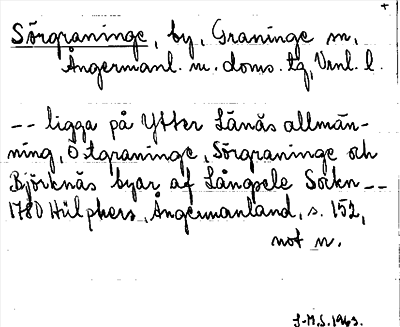 +
Sörgraninge, by, Graninge sn,
Ångermanl. m. doms. tg, Vrnl. l.
-- ligga på Ytter Länäs allmän-
ning, Östgraninge, Sörgraninge och
Björknäs byar af Långsele Sokn --
1780 Hülphers, Ångermanland, s. 152,
not n.
S-M.S. 1963.